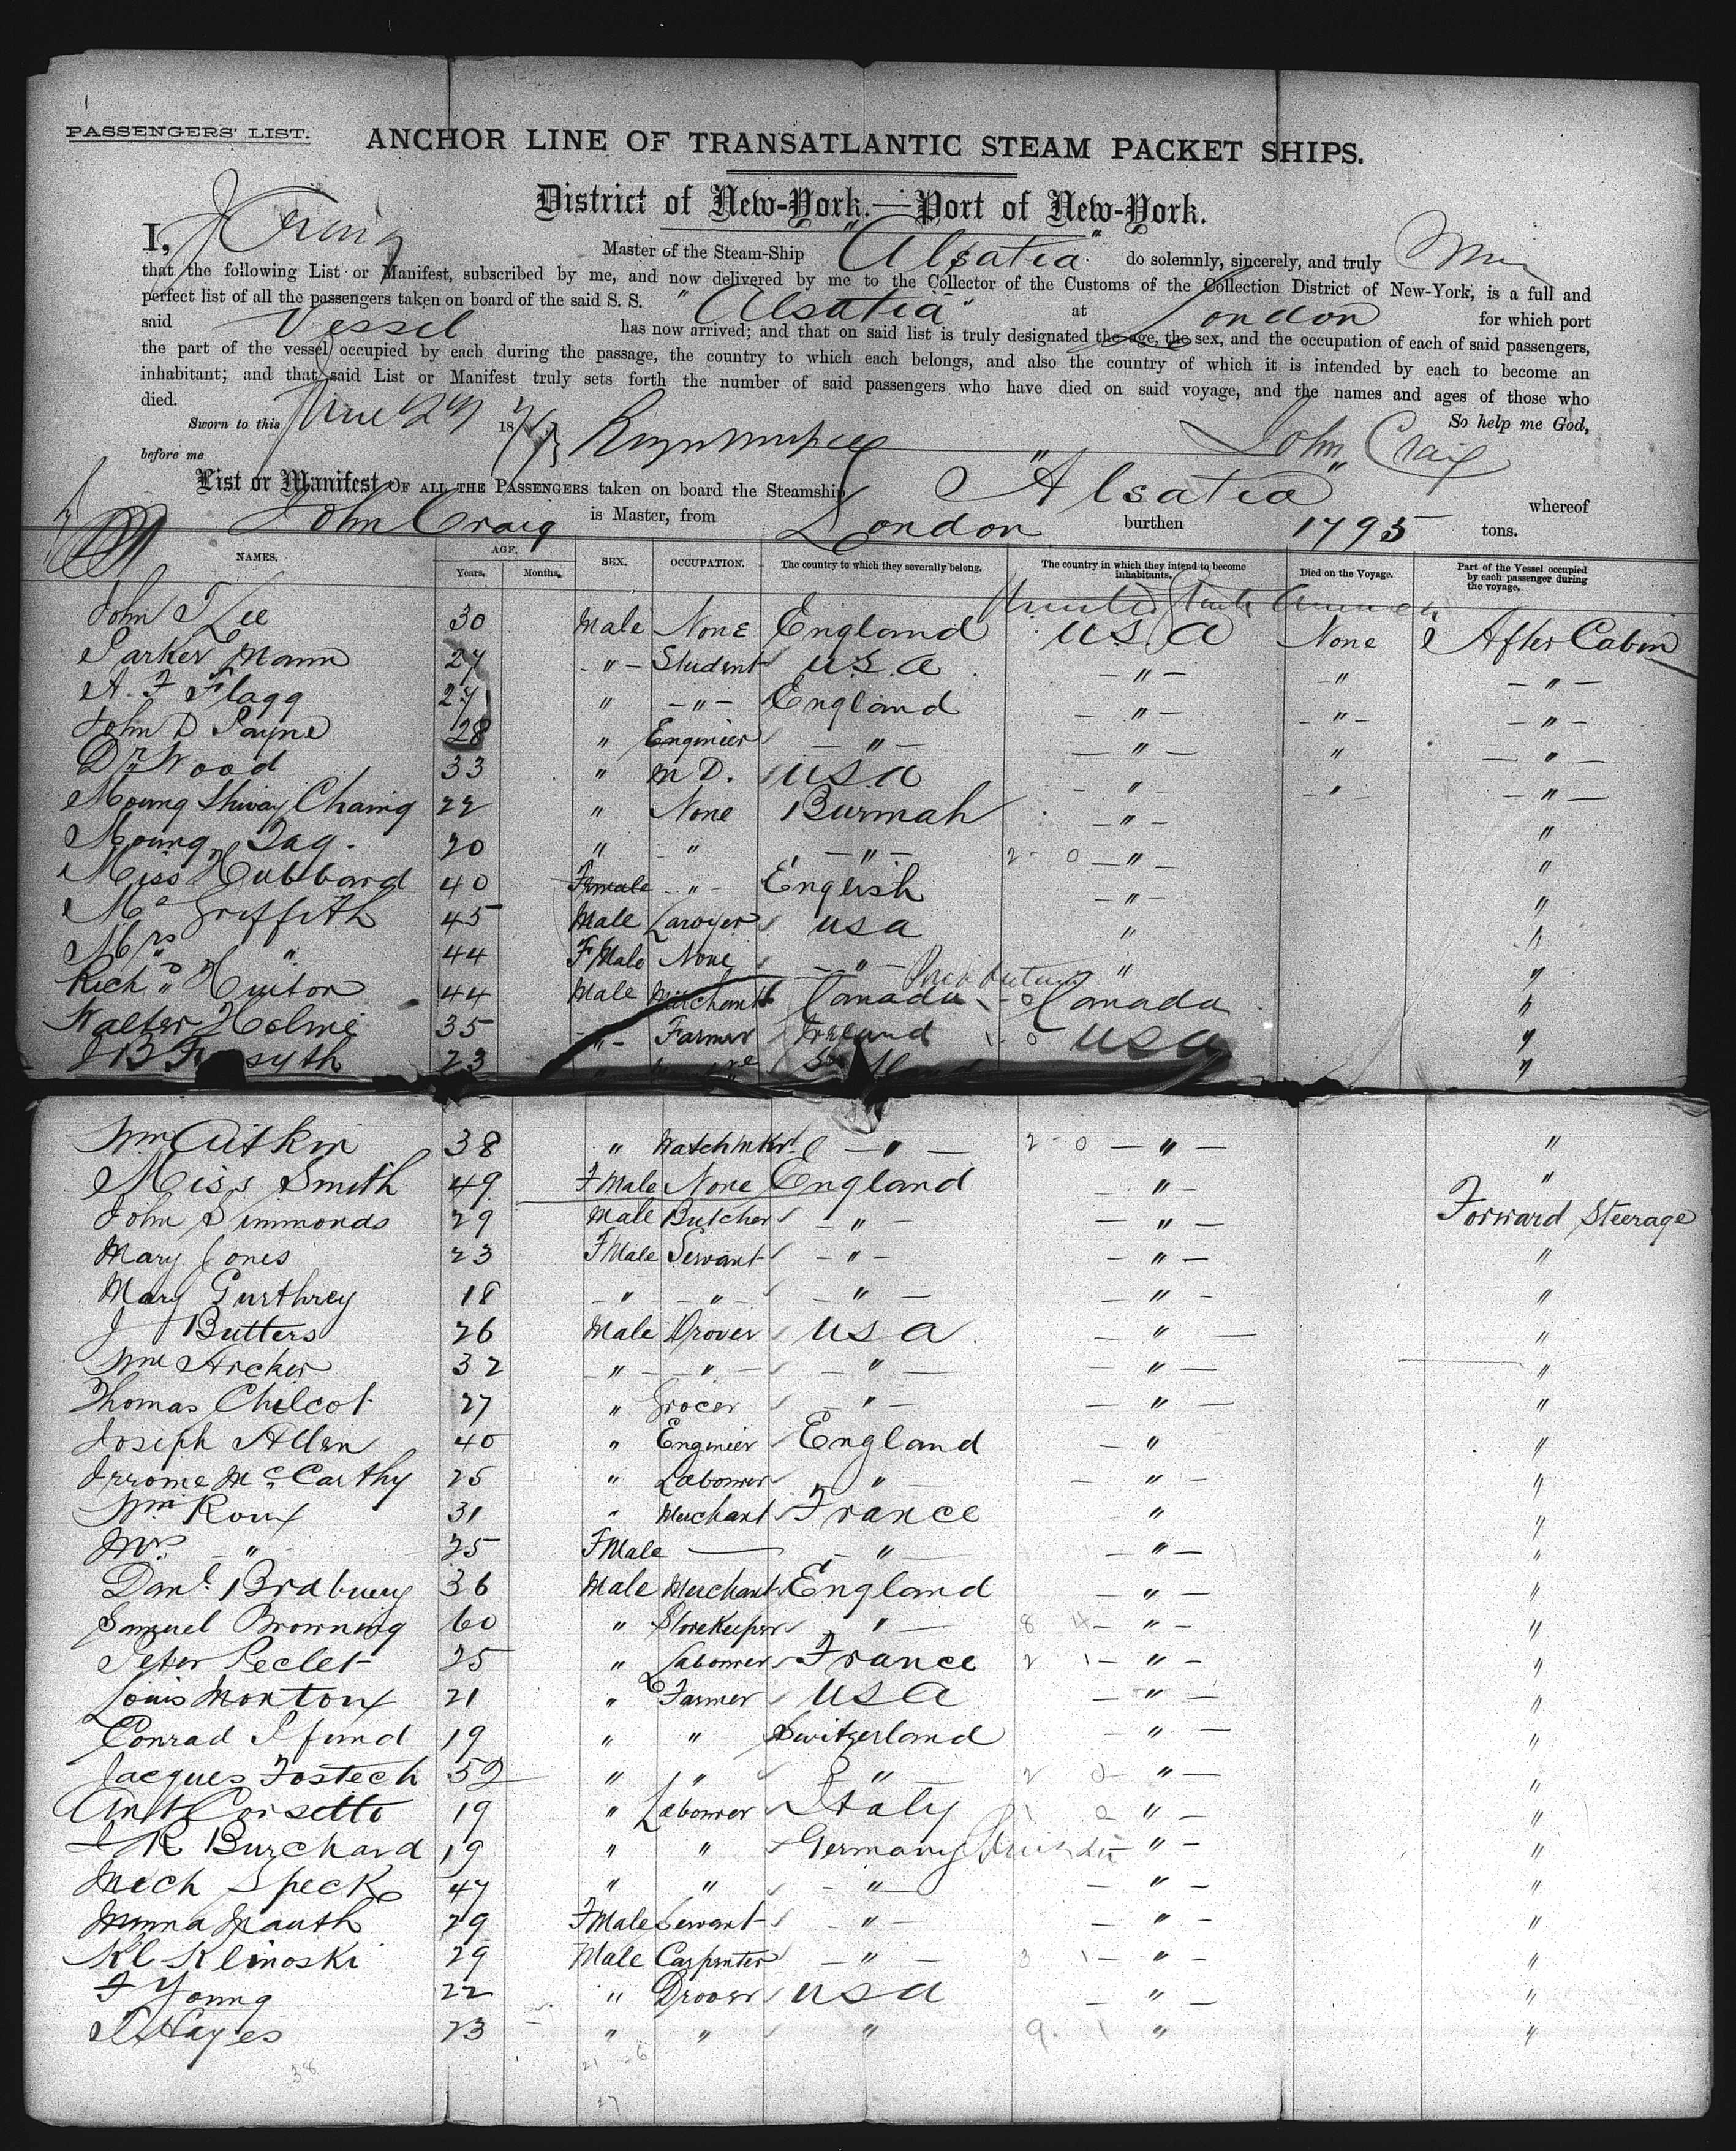 PASSENGERS' LIST.
ANCHOR LINE OF TRANSATLANTIC STEAM PACKET SHIPS.
District of New-York.—Port of New-York.
I, J Craig Master of the Steam-Ship "Alsatia" do solemnly, sincerely, and truly
that the following List or Manifest, subscribed by me, and now delivered by me to the Collector of the Customs of the Collection District of New-York, is a full and
perfect list of all the passengers taken on board of the said S. S. "Alsatia" at London for which port
said Vessel has now arrived; and that on said list is truly designated the age, the sex, and the occupation of each of said passengers,
the part of the vessel occupied by each during the passage, the country to which each belongs, and also the country of which it is intended by each to become an
inhabitant; and that said List or Manifest truly sets forth the number of said passengers who have died on said voyage, and the names and ages of those who
died. So help me God,
Sworn to this June 27 18 John Craig
before me
List or Manifest OF ALL THE PASSENGERS taken on board the Steamship "Alsatia" whereof
John Craig is Master, from London burthen 1795 tons.
NAMES. AGE. Years. Months. SEX. OCCUPATION. The country to which they severally belong. The country in which they intend to become inhabitants. Died on the Voyage. Part of the Vessel occupied by each passenger during the voyage.
United States America
John T Lee 30 Male None England USA None After Cabin
Parker Mann 27 " Student U.S.A " " "
A. F Flagg 27 " " England " " "
John D Payne 28 " Engineer " " " "
Dr Wood 33 " M D. USA " " "
Moung Shway Chaing 22 " None Burmah " "
Moung Zag. 20 " " " 2 - 0 " "
Miss Hubbard 40 Female " English " "
Mr Griffith 45 Male Lawyer USA " "
Mrs " 44 F Male None " " "
Richd Hinton 44 Male Merchant Canada - 0 Canada "
Walter Holme 35 " Farmer Ireland 1 - 0 USA "
J B Forsyth 23 " "
Wm Aitkin 38 " Watchmkr " 2 - 0 " "
Miss Smith 49 F Male None England " "
John Simmonds 29 Male Butcher " " Forward Steerage
Mary Jones 23 F Male Servant " " "
Mary Gurthrey 18 " " " " "
J Butters 26 Male Drover USA " "
Wm Archer 32 " " " " "
Thomas Chilcot 27 " Grocer " " "
Joseph Allen 40 " Engineer England " "
Jerrome McCarthy 25 " Labourer " " "
Wm Roux 31 " Merchant France " "
Mrs " 25 F Male — " " "
Danl Bradbury 36 Male Merchant England " "
Samuel Browning 60 " Storekeeper " 8 4 " "
Peter Peclet 25 " Labourer France 2 1 " "
Louis Montoux 21 " Farmer USA " "
Conrad Pfund 19 " " Switzerland " "
Jacques Fostech 52 " " " 2 " "
Ant Corsetto 19 " Labourer Italy 1 0 " "
J R Burchard 19 " " Germany " "
Mich Speck 47 " " " " "
Minna Nauth 29 F Male Servant " " "
Kl Klinoski 29 Male Carpenter " 3 1 " "
F Young 22 " Drover USA " "
T Hayes 23 " " " 9 1 " "
38 21 - 6
27